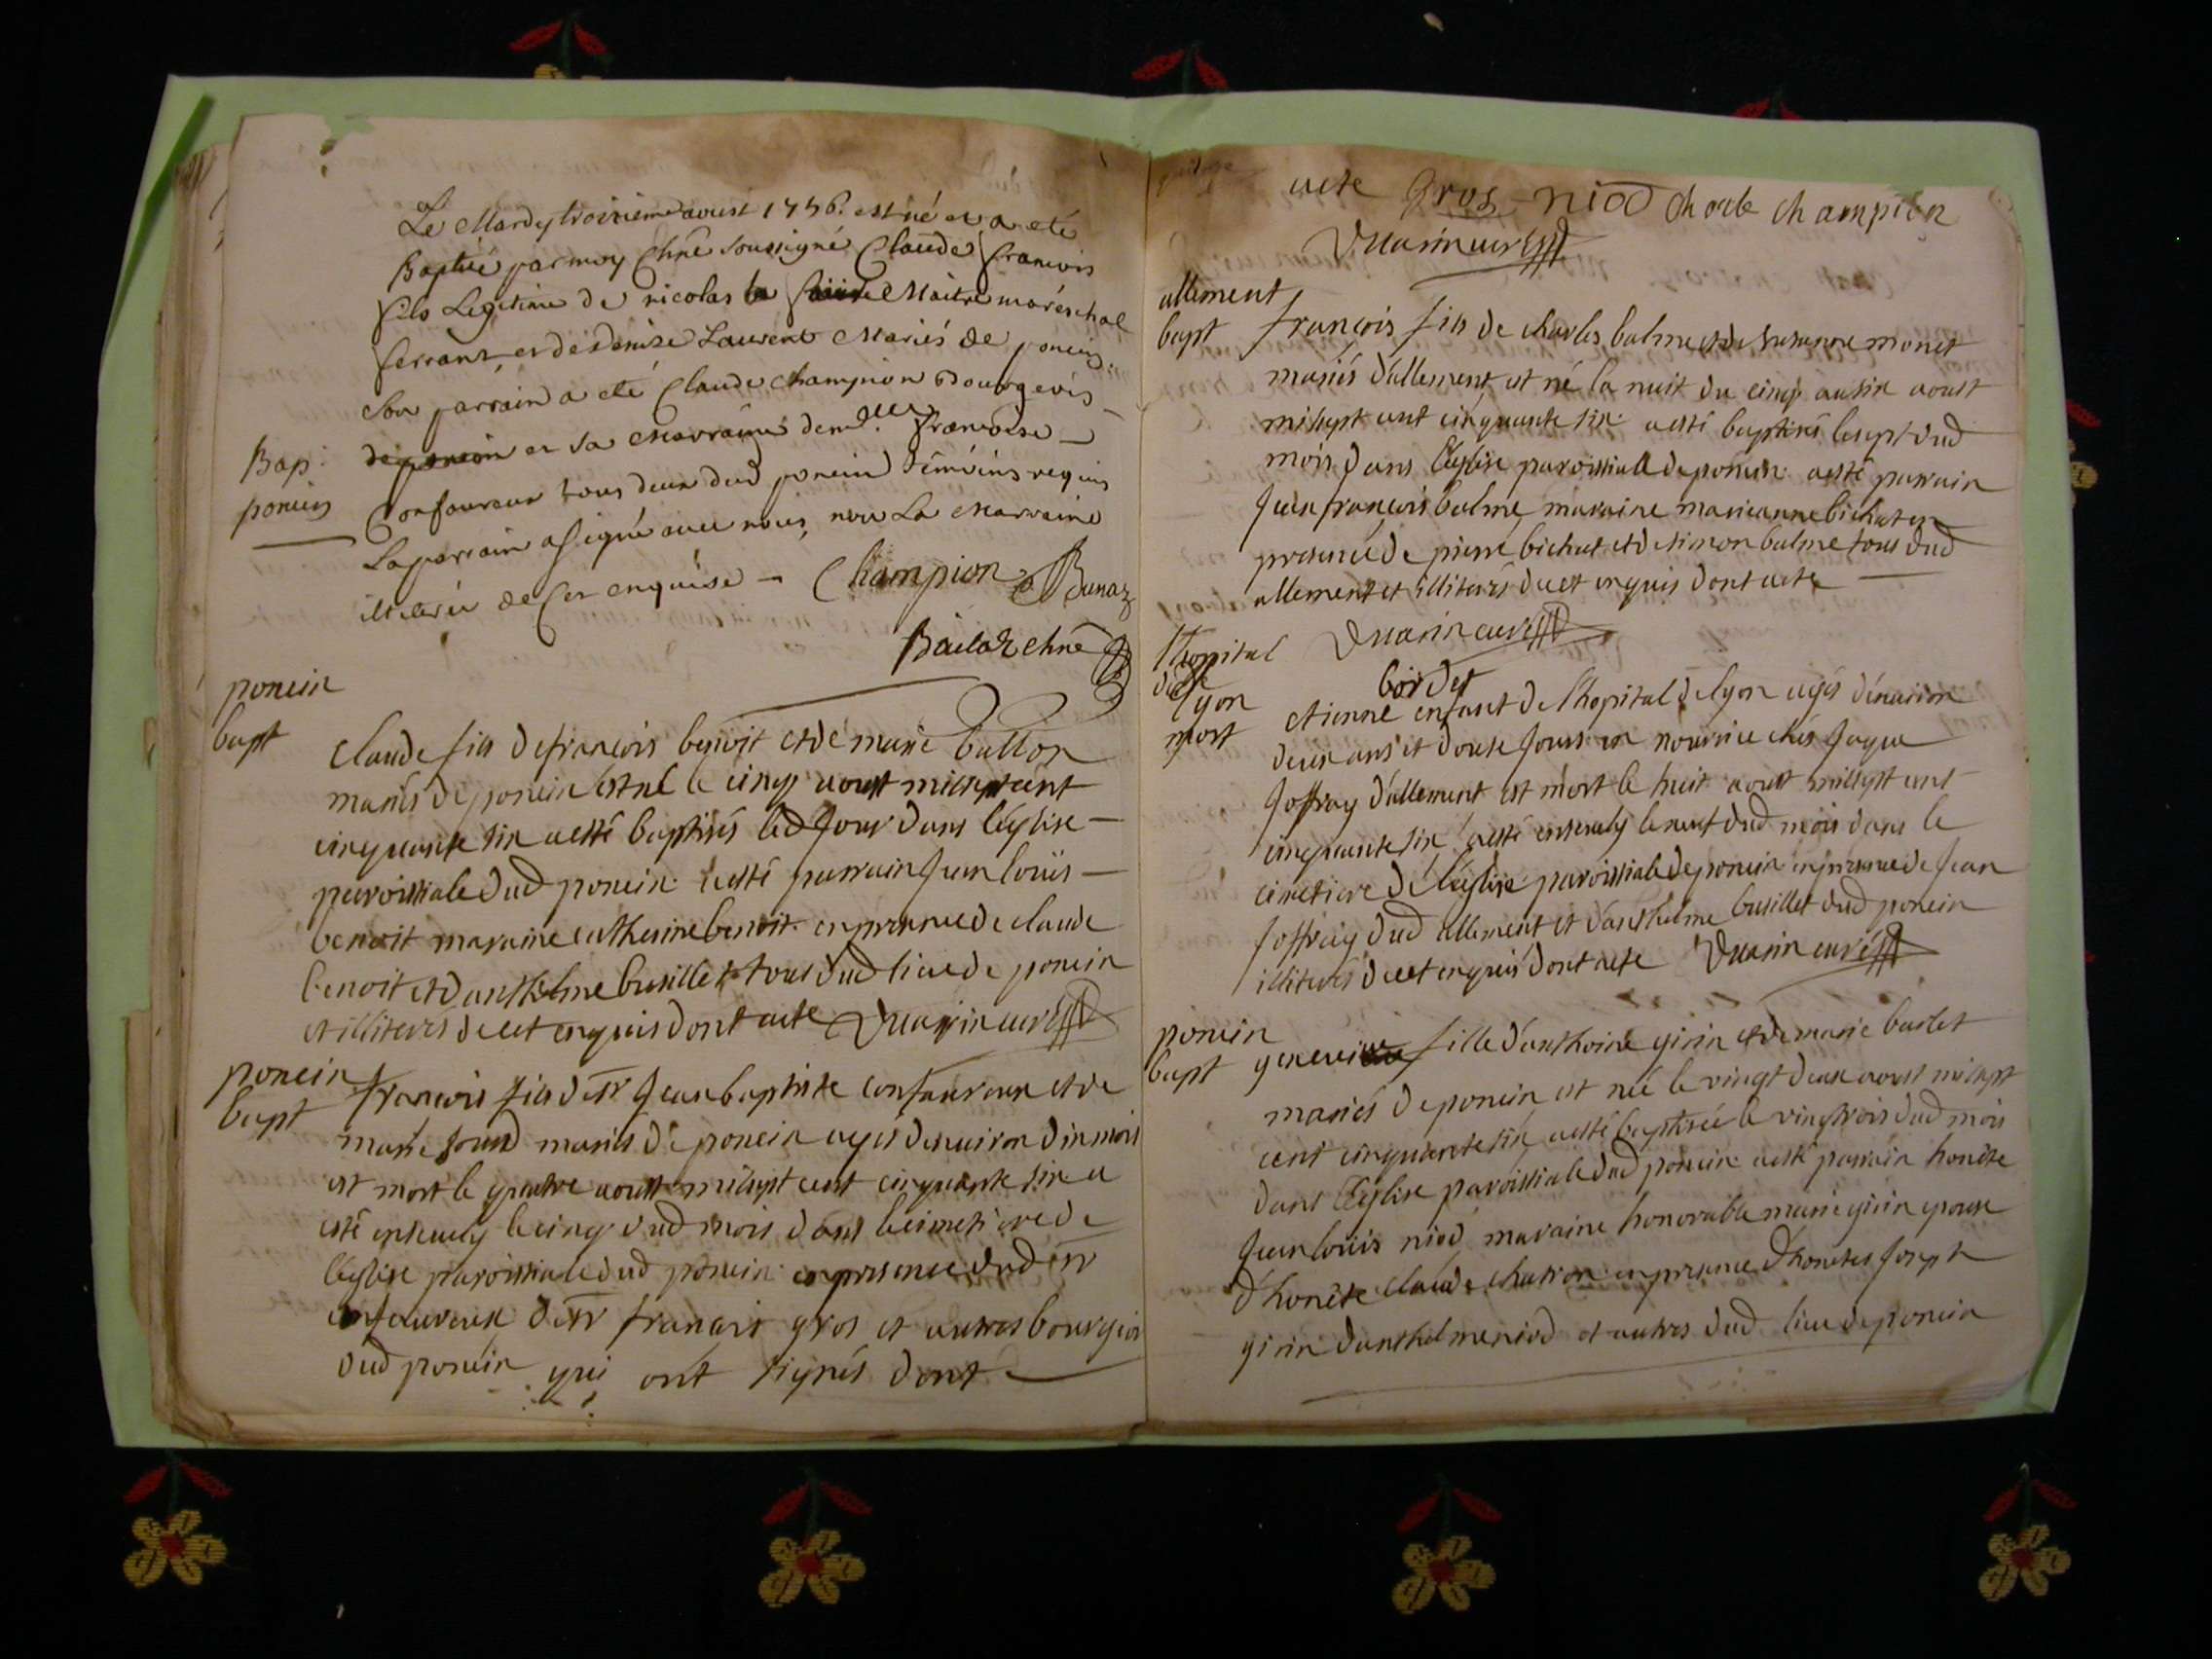 Le Mardy troisieme aoust 1756. est né et a eté
Baptisé par moy Chne soussigné Claude francois
fils Legitime de nicolas Maitre maréschal
ferrant et de denize Laurent Mariés de poncin
son parrain a eté Claude Champion Bourgeois
de poncin et sa Marraine demlle francoise
Bap.
poncin
Confavreux tous deux dud poncin témoins requis
Le parrain a signé avec nous, non La Marraine
illiterée de ce enquise - Champion Bunaz
chne
poncin
bapt
Claude fils de francois benoit et de marie ballon
mariés de poncin est né le cinq aoust mil sept cent
cinquante six a esté baptisés led Jour dans l'église
paroissiale dud poncin a esté parrain Jean loüis
benoit maraine catherine benoit en presence de claude
benoit et d'anthelme busillet tous dud lieu de poncin
et illiterés de cet enquis dont acte curé
poncin
bapt
francois fils de sr Jean baptiste confavreux et de
marie mariés de poncin agés d'enuiron dix mois
est mort le quatre aoust mil sept cent cinquante six a
esté enseuely le cinq dud mois dans le cimetiere de
l'église paroissiale dud poncin en presence dud sr
confavreux de sr francois gros et autres bourgeois
dud poncin qui ont signés dont
acte Gros niod Champion
curé
allement
bapt
francois fils de charles balme et de susanne monet
mariés d'allement est né la nuit du cinq au six aoust
mil sept cent cinquante six a esté baptisés le sept dud
mois dans l'église paroissiale de poncin a esté parrain
Jean francois balme maraine marie anne bichat en
presence de pierre bichat et de simon balme tous dud
allement et illiterés de cet enquis dont acte
curé
l'hopital
de
lyon
mort
bordet
etienne enfant de l'hopital de lyon agés d'enuiron
deux ans et douse Jours en nourrice chés Jaque
Joffray d'allement est mort le huit aoust mil sept cent
cinquante six a esté enseuely le neuf dud mois dans le
cimetiere de l'église paroissiale de poncin en presence de Jean
Joffray dud allement et d'anthelme busillet dud poncin
illiterés de cet enquis dont acte curé
poncin
bapt
fille d'anthoine girin et de marie barlet
mariés de poncin est née le vingt deux aoust mil sept
cent cinquante six a esté baptisée le vingt trois dud mois
dans l'église paroissiale dud poncin a esté parrain honête
Jean loüis niod maraine honorable marie girin epouse
d'honête claude chatron en presence d'honetes Joseph
girin d'anthelme niod et autres dud lieu de poncin